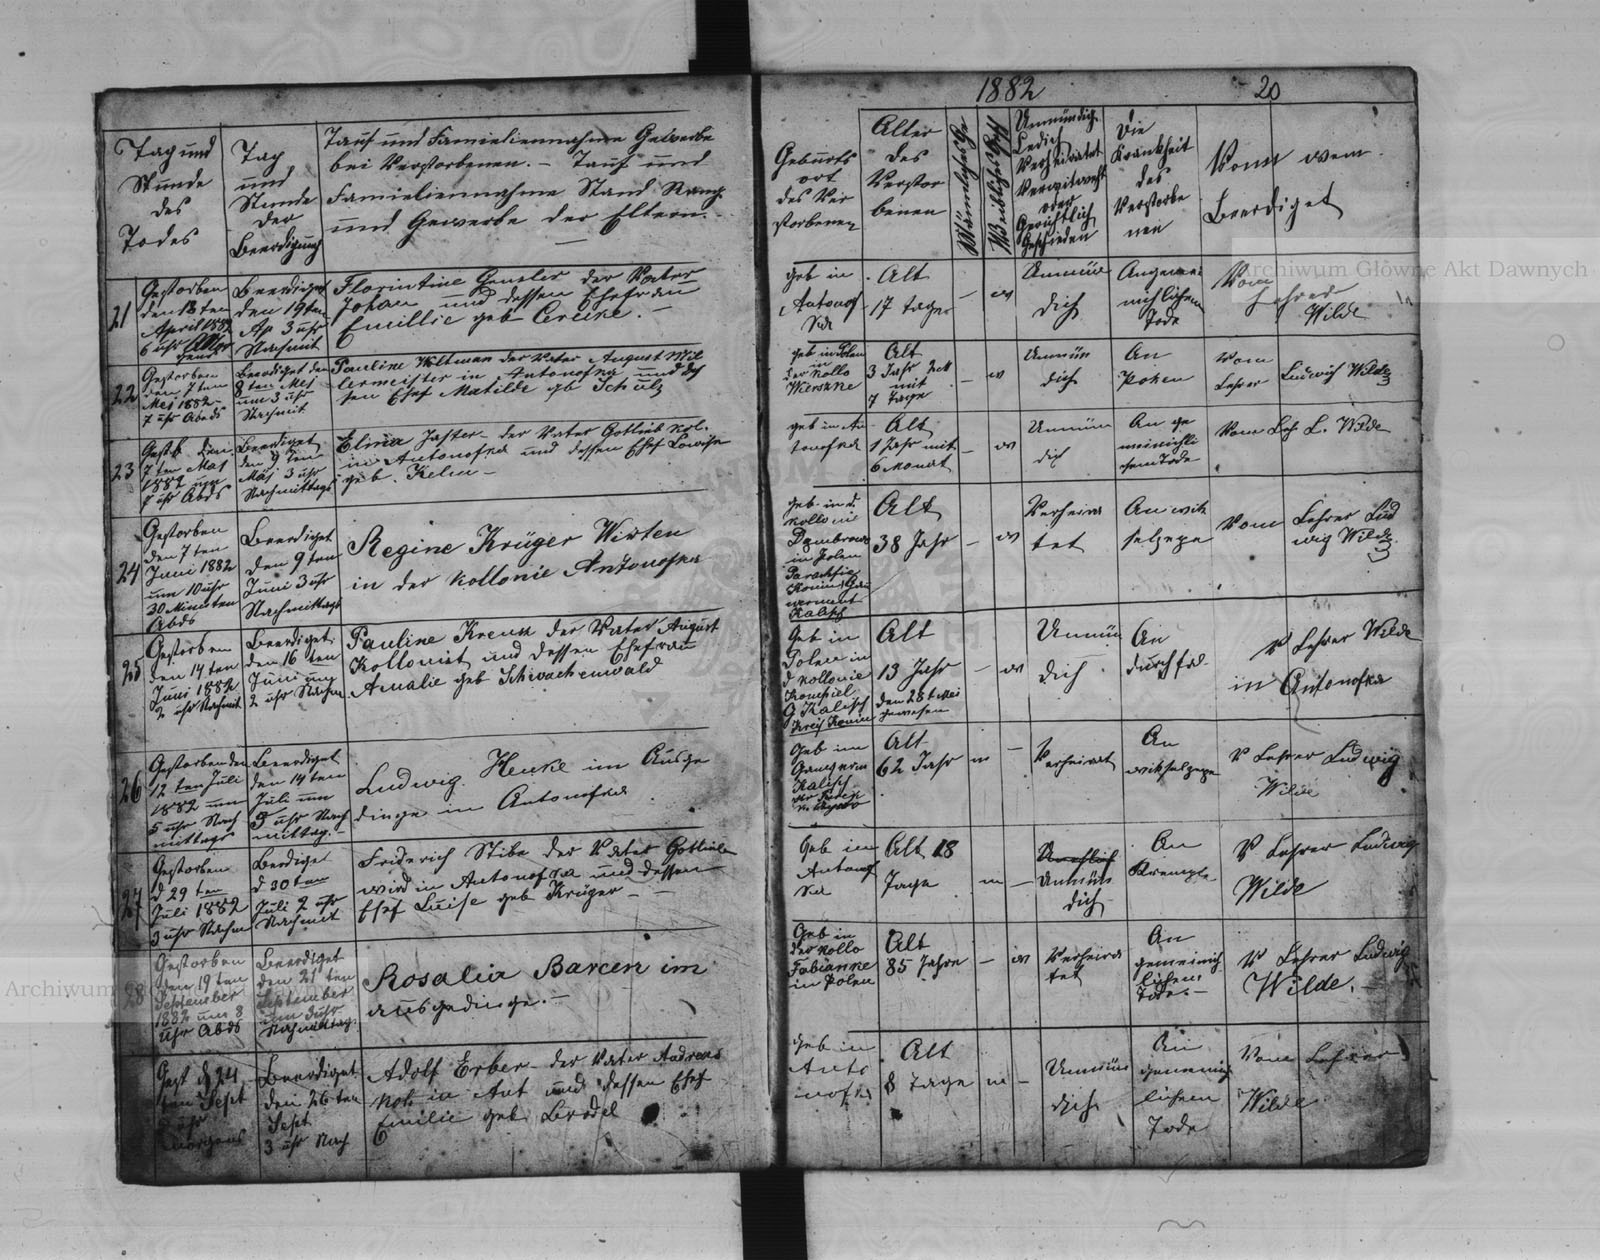 1882
20
Tag und
Stunde
des
Todes
Tag
und
Stunde
der
Beerdigung
Tauf und Familiennahme Gewerbe
bei Verstorbenen. – Tauf und
Familiennahme Stand Rang
und Gewerbe der Eltern. –
Geburts
ort
des Ver
storbenen
Alter
des
Verstor
benen
Männliches
Weibliches
Unmündig
Ledich
Verheiratet
Verwitwet
oder
Gerichtlich
Geschieden
Die
Krankheit
des
Verstorbe
nen
Vom wem
Beerdiget
21
Gestorben
April 1882
6 uhr
Beerdiget
den 19 ten
Ap 3 uhr
Nachmit
Florintine der Vater
Johan und dessen Ehefrau
Emillie geb
geb in
Antonof
ka
Alt
17 tage
– w
Unmün
dich
Angemei
nichlichem
Tode
Vom
Lehrer
Wilde
22
Gestorben
den 7 ten
Mej 1882
7 uhr Abds
Beerdiget den
8 ten Mej
um 3 uhr
Nachmit
Pauline Woltman der Vater August Mül
lermeister in Antonofka und des
sen Ehef Matilde gb Schulz
geb in Polen
der Kollo
Alt
3 Jahr
mit
7 Tage
– w
Unmün
dich
An
Poken
Vom
Lehrer Ludwich Wilde
23
Gestb den
7 ten Maj
1882 um
uhr Abds
Beerdiget
den 9 ten
Maj 3 uhr
Nachmittags
Jaster – der Vater Gottlieb Kol.
in Antonofka und dessen Ehef Lowise
geb. Kelm –
geb in An
tonofka
Alt
1 Jahr mit
6 Monat
– w
Unmün
dich
An ge
meinichli
chem Tode
Vom Leh L. Wilde
24
Gestorben
den 7 ten
Juni 1882
um 10 uhr
30 Minuten
Abds
Beerdiget
den 9 ten
Juni 3 uhr
Nachmittags
Regine Krüger Wirten
in der Kollonie Antonofka
geb. in d.
Kollonie
in Polen
Kalisch
Alt
38 Jahr
– w
Verheira
tet
Vom Lehrer Lud
wig Wilde
25
Gestorben
den 14 ten
Juni 1882
2 uhr Nachmit
Beerdiget
den 16 ten
Juni um
2 uhr Nachm
Pauline der Vater August
Kollonist und dessen Ehefrau
Amalie geb Schwachenwald
Geb in
Polen in
d Kollonie
G Kalisch
Kreis Konin
Alt
13 Jahr
den 28 t Mei
gewesen
– w
Unmün
dich
An
durchfal
V Lehrer Wilde
in Antonofka
26
Gestorben den
12 ten Juli
1882 um
5 uhr Nach
mittags
Beerdiget
den 14 ten
Juli um
uhr Nach
mittag. –
Ludwig Henke im Ausge
dinge in Antonofka
Geb im
Kalisch
Alt
62 Jahr
m –
Verheirat
An
V Lehrer Ludwig
Wilde
27
Gestorben
d 29 ten
Juli 1882
3 uhr Nachm
Berdiget
d 30 ten
Juli 2 uhr
Nachmit
Friderich Stibe der Vater Gotlieb
wird in Antonofka und dessen
Ehef Luise geb Krüger –
Geb im
Antonof
ka
Alt 18
Tage
m –
Unmün
dich
An
V Lehrer Ludwig
Wilde
28
Gestorben
den 19 ten
September
1882 um 8
uhr Abds
Beerdiget
den 21 ten
September
um 3 uhr
Nachmittag
Rosalia Barcen im
ausgedinge. –
Geb in
der Kollo
Fabianke
in Polen
Alt
85 Jahre
– w
Verheira
tet
An
gemeinich
lichem
Tode. –
V Lehrer Ludwig
Wilde. –
Gest d 24
ten Sept
uhr
Morgens
Beerdiget
den 26 ten
Sept
3 uhr Nach
Adolf Erber – der Vater Andreas
Kol. in Ant und dessen Ehef
Emilie geb
geb in
Anto
nofka
Alt
8 Tage
m –
Unmün
dich
An
gemeinig
lichem
Tode
Vom Lehrer
Wilde
Archiwum Główne Akt Dawnych